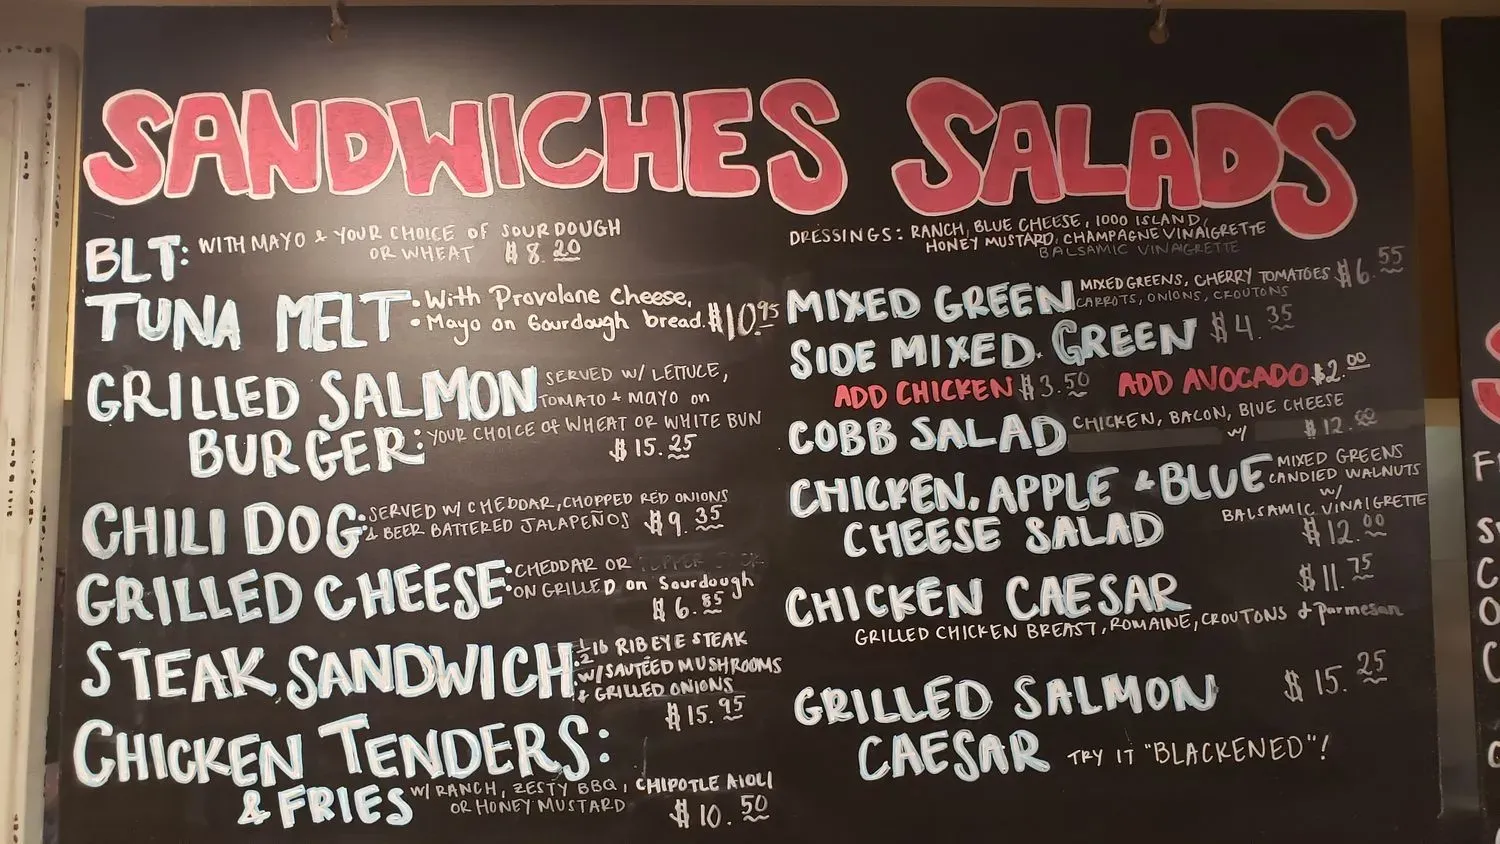 SANDWICHES
BLT: WITH MAYO & YOUR CHOICE OF SOURDOUGH
OR WHEAT $8.20
TUNA MELT • With Provolone Cheese,
• Mayo on Sourdough bread. $10.95
GRILLED SALMON SERVED W/ LETTUCE,
TOMATO & MAYO on
BURGER: YOUR CHOICE OF WHEAT OR WHITE BUN
$15.25
CHILI DOG: SERVED W/ CHEDDAR, CHOPPED RED ONIONS
& BEER BATTERED JALAPEÑOS $9.35
GRILLED CHEESE: CHEDDAR OR PEPPER JACK
ON GRILLED on Sourdough
$6.85
STEAK SANDWICH: 1/2 lb RIBEYE STEAK
w/ SAUTÉED MUSHROOMS
& GRILLED ONIONS
$15.95
CHICKEN TENDERS:
& FRIES W/ RANCH, ZESTY BBQ, CHIPOTLE AIOLI
OR HONEY MUSTARD $10.50
SALADS
DRESSINGS: RANCH, BLUE CHEESE, 1000 ISLAND,
HONEY MUSTARD, CHAMPAGNE VINAIGRETTE
BALSAMIC VINAIGRETTE
MIXED GREEN MIXED GREENS, CHERRY TOMATOES $6.55
CARROTS, ONIONS, CROUTONS
SIDE MIXED GREEN $4.35
ADD CHICKEN $3.50 ADD AVOCADO $2.00
COBB SALAD CHICKEN, BACON, BLUE CHEESE
w/ $12.00
CHICKEN, APPLE & BLUE MIXED GREENS
CANDIED WALNUTS
w/
CHEESE SALAD BALSAMIC VINAIGRETTE
$12.00
CHICKEN CAESAR $11.75
GRILLED CHICKEN BREAST, ROMAINE, CROUTONS & Parmesan
GRILLED SALMON $15.25
CAESAR TRY IT "BLACKENED"!